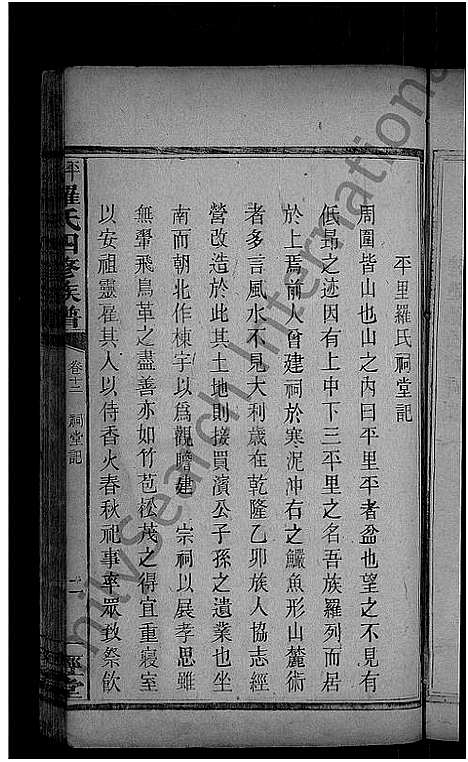 平里羅氏祠堂記
周圍皆山也山之內曰平里平者盆也望之不見有
低昻之迹因有上中下三平里之名吾族羅列而居
於上焉前人曾建祠於寒泥冲右之鱺魚形山麓術
者多言風水不見大利歲在乾隆乙卯族人協志經
營改造於此其土地則接買濱公子孫之遺業也坐
南而朝北作棟宇以爲觀瞻建 宗祠以展孝思雖
無翬飛鳥革之盡善亦如竹苞松茂之得宜重寢室
以安祖靈雇其人以侍香火春秋祀事率眾致祭飲
平羅氏四修族譜 卷十二 祠堂記 二 堂
mlvSearch International